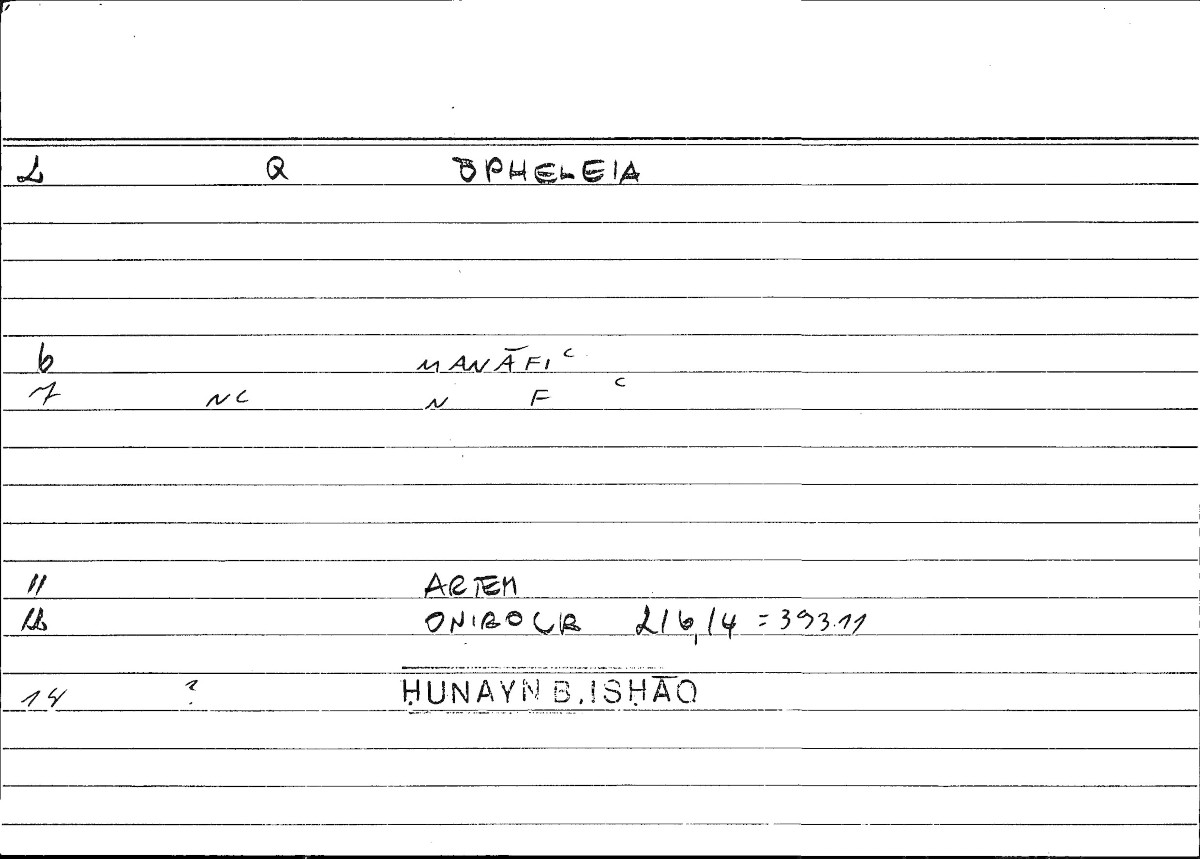 2 Q ŌPHELEIA
6 MANĀFIʿ
7 NC N F ʿ
11 ARTEM
12 ONIROCR 2/6,14 = 393.11
14 ? ḤUNAYN B. ISḤĀQ